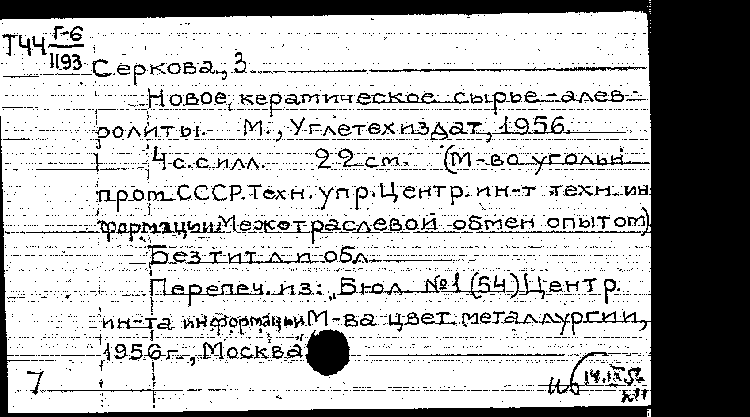 Т44 Г-6
1193
Серкова, З
Новое керамическое сырье - алев-
ролиты. М., Углетехиздат, 1956.
4 с. с илл. 22 см. (М-во угольн
пром СССР. Техн. упр. Центр. ин-т техн. ин
формации Межотраслевой обмен опытом)
Без тит. л. и обл.
Перепеч. из: "Бюл. №1 (54) Центр.
ин-та информации М-ва цвет. металлургии,
1956 г., Москва"
7
14.IX.56